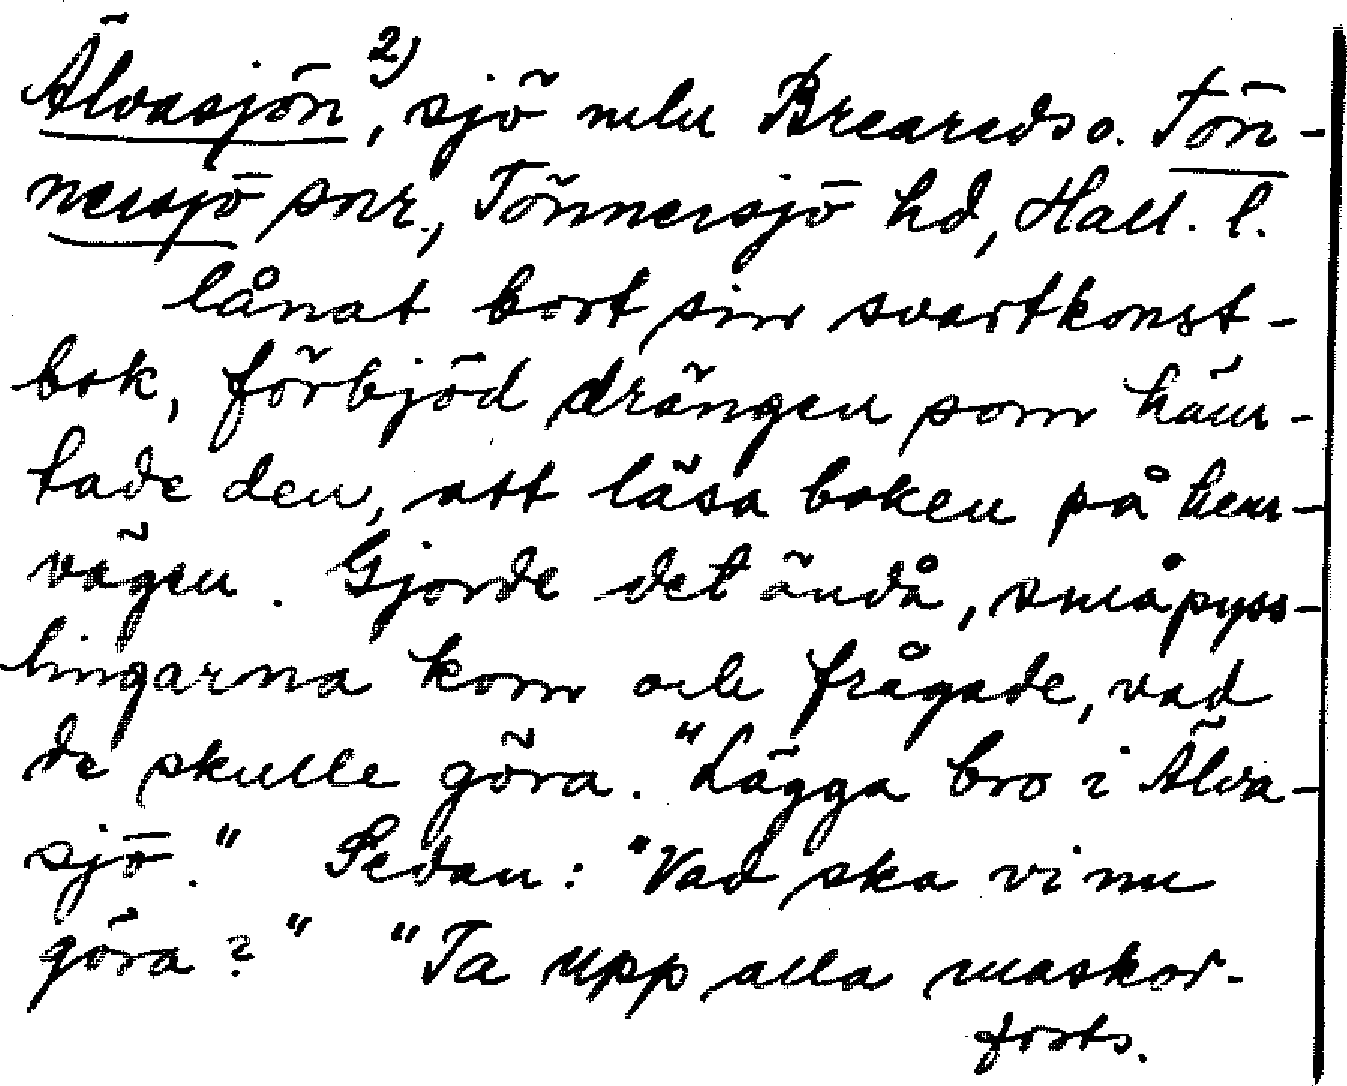 Älvasjön 2), sjö mlu Breareds o. Tön-
nersjö snr., Tönnersjö hd, Hall. l.
lånat bort sin svartkonst-
bok, förbjöd drängen som häm-
tade den, att läsa boken på hem-
vägen. Gjorde det ändå, småpyss-
lingarna kom och frågade, vad
de skulle göra. "Lägga bro i Älva-
sjö." Sedan: "Vad ska vi nu
göra?" "Ta upp alla maskor-
forts.